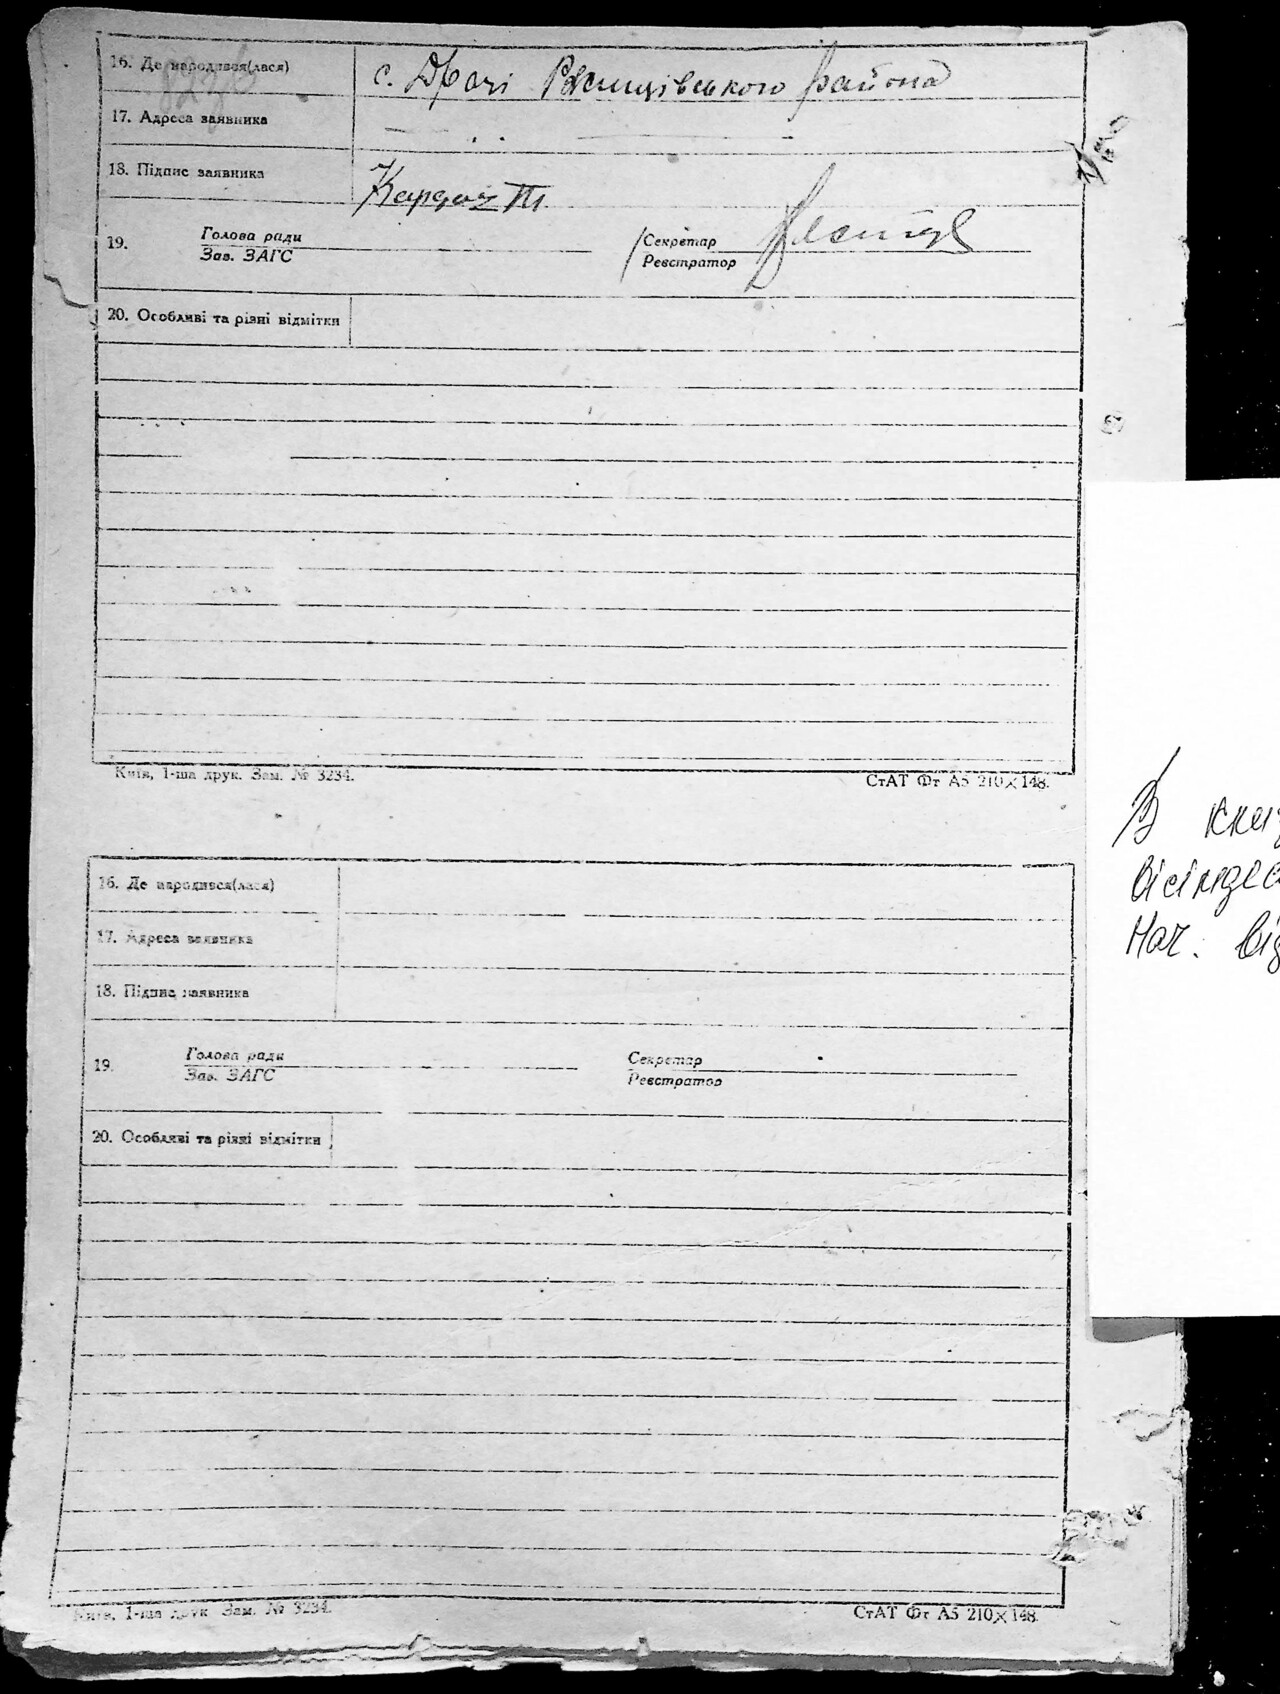 16. Де народився(лася) с. Драчі Ржищівського району
17. Адреса заявника
18. Підпис заявника Кардаш
19. Голова ради Секретар
Зав. ЗАГС Реєстратор
20. Особливі та різні відмітки
Київ, 1-ша друк. Зам. № 3234. СтАТ Фт А5 210×148.
16. Де народився(лася)
17. Адреса заявника
18. Підпис заявника
19. Голова ради Секретар
Зав. ЗАГС Реєстратор
20. Особливі та різні відмітки
Київ, 1-ша друк. Зам. № 3234. СтАТ Фт А5 210×148.
В кни
вісімдес
Нач. від